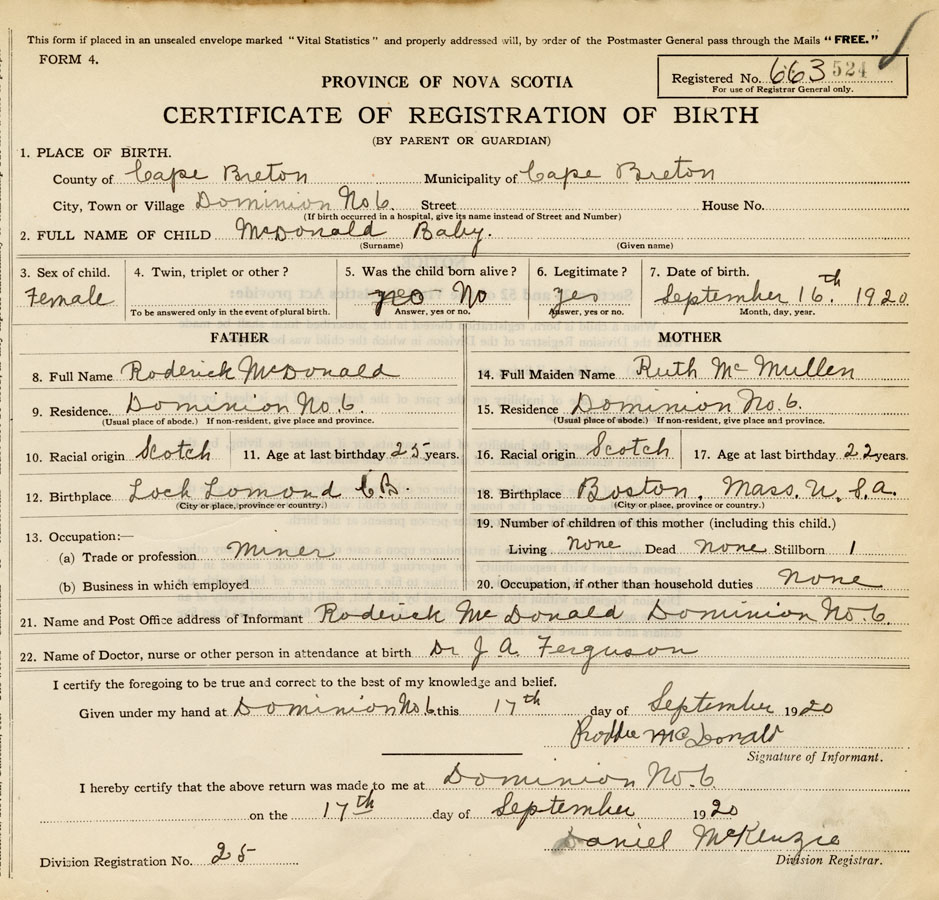 This form if placed in an unsealed envelope marked "Vital Statistics" and properly addressed will, by order of the Postmaster General pass through the Mails "FREE."
FORM 4.
PROVINCE OF NOVA SCOTIA
Registered No. 663 524
For use of Registrar General only.
CERTIFICATE OF REGISTRATION OF BIRTH
(BY PARENT OR GUARDIAN)
1. PLACE OF BIRTH.
County of Cape Breton Municipality of Cape Breton
City, Town or Village Dominion No 6. Street House No.
(If birth occurred in a hospital, give its name instead of Street and Number)
2. FULL NAME OF CHILD McDonald Baby.
(Surname) (Given name)
3. Sex of child. 4. Twin, triplet or other? 5. Was the child born alive? 6. Legitimate? 7. Date of birth.
Female yes No yes September 16th. 1920
To be answered only in the event of plural birth. Answer, yes or no. Answer, yes or no. Month, day, year.
FATHER MOTHER
8. Full Name Roderick McDonald 14. Full Maiden Name Ruth McMullen
9. Residence. Dominion No. 6. 15. Residence Dominion No. 6.
(Usual place of abode.) If non-resident, give place and province. (Usual place of abode.) If non-resident, give place and province.
10. Racial origin Scotch 11. Age at last birthday 25 years. 16. Racial origin Scotch 17. Age at last birthday 22 years.
12. Birthplace Loch Lomond C.B. 18. Birthplace Boston, Mass. U.S.A.
(City or place, province or country.) (City or place, province or country.)
13. Occupation:— 19. Number of children of this mother (including this child.)
(a) Trade or profession Miner Living None Dead None Stillborn 1
(b) Business in which employed 20. Occupation, if other than household duties None
21. Name and Post Office address of Informant Roderick McDonald Dominion No. 6
22. Name of Doctor, nurse or other person in attendance at birth Dr J. A. Ferguson
I certify the foregoing to be true and correct to the best of my knowledge and belief.
Given under my hand at Dominion No. 6 this 17th day of September 1920
Roddie McDonald
Signature of Informant.
I hereby certify that the above return was made to me at Dominion No. 6
on the 17th day of September 1920
Daniel McKenzie
Division Registration No. 25 Division Registrar.